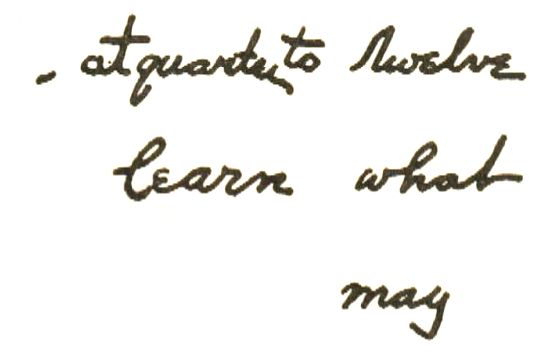 at quarter to twelve
learn what
may